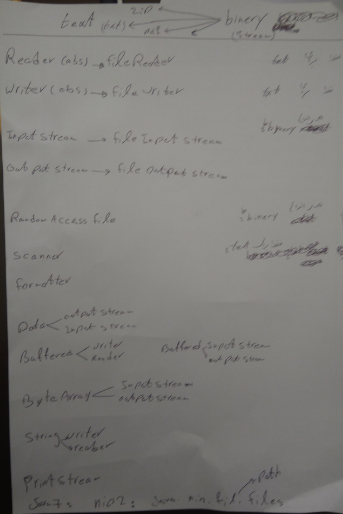 text (txt) zip net binary (stream)
Reader (abs) → file Reader txt
Writer (abs) → file writer txt
Input stream → file Input stream binary
Output stream → file Output stream
Random Access file binary
Scanner
formatter
Data output stream Input stream
Buffered writer Reader Buffered Input stream output stream
Byte Array Input stream output stream
String writer reader
Print Stream path
Java 7: nio2: Java nio. file. files